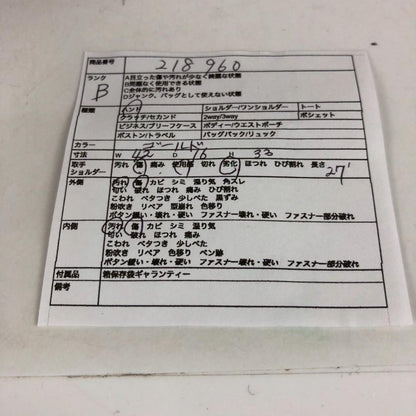 商品番号 218960
ランク B A目立った傷や汚れが少なく綺麗な状態
B問題なく使用できる状態
C全体的に汚れあり
Dジャンク、バッグとして使えない状態
種類 ハンド ショルダー/ワンショルダー トート
クラッチ/セカンド 2way/3way ポシェット
ビジネス/ブリーフケース ボディー/ウエストポーチ
ボストン/トラベル バックパック/リュック
カラー ゴールド
寸法 W 42 D 16 H 33
取手 汚れ 傷 痛み 使用感 切れ 劣化 ほつれ ひび割れ 長さ 27
ショルダー
外側 汚れ 傷 カビ シミ 湿り気 角スレ
匂い 破れ ほつれ 痛み ひび割れ
こわれ ベタつき 少しべた 黒ずみ
粉吹き リペア 型崩れ 色移り
ボタン緩い・壊れ・硬い ファスナー壊れ・硬い ファスナー部分破れ
内側 汚れ 傷 カビ シミ 湿り気
匂い 破れ ほつれ 痛み
こわれ ベタつき 少しべた
粉吹き リペア 色移り ペン跡
ボタン緩い・壊れ・硬い ファスナー壊れ・硬い ファスナー部分破れ
付属品 箱保存袋ギャランティー
備考